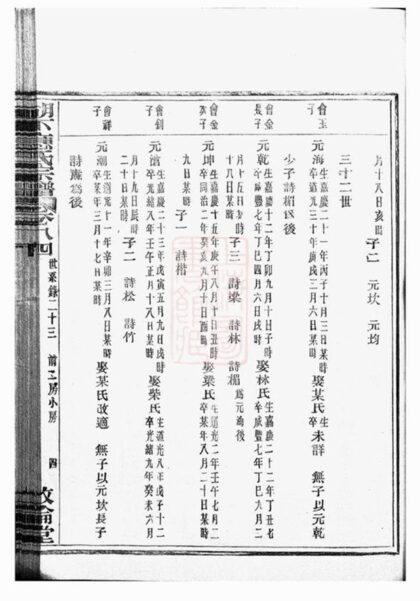 月十八日亥時子二 元坎 元均
三十二世
會玉子 元海 生嘉慶二十一年丙子十月三日某時 卒道光三十年 四月六日某時 娶某氏 生卒未詳 無子以元乾
少子詩楣 後
會金長子 元乾 生嘉慶十二年丁卯九月十日子時 卒咸豐七年丁巳四月六日戌時 娶林氏 生嘉慶二十二年丁丑七 卒咸豐七年丁巳九月二
月十五日 時 十八日某時 子三 詩梁 詩林 詩楣 爲元海後
會金次子 元坤 生嘉慶十五年庚午八月十日丑時 卒同治二年癸亥九月十日酉時 娶梁氏 生道光二年壬午八月二十 卒某年八月二十日某時
九日某時 子一 詩楷
會釗子 元滄 生嘉慶二十三年戊寅五月九日戌時 卒光緒八年壬午正月六日某時 娶柴氏 生道光八年戊子十二 卒光緒九年癸未六月
月十九日辰時 二十日某時 子二 詩松 詩竹
會祥子 元潮 生道光十一年辛卯三月八日某時 卒某年三月十七日某時 娶某氏改適 無子以元坎長子
詩 爲後
氏宗譜 卷八 世系錄二十三 前二房小房 四 敦倫堂